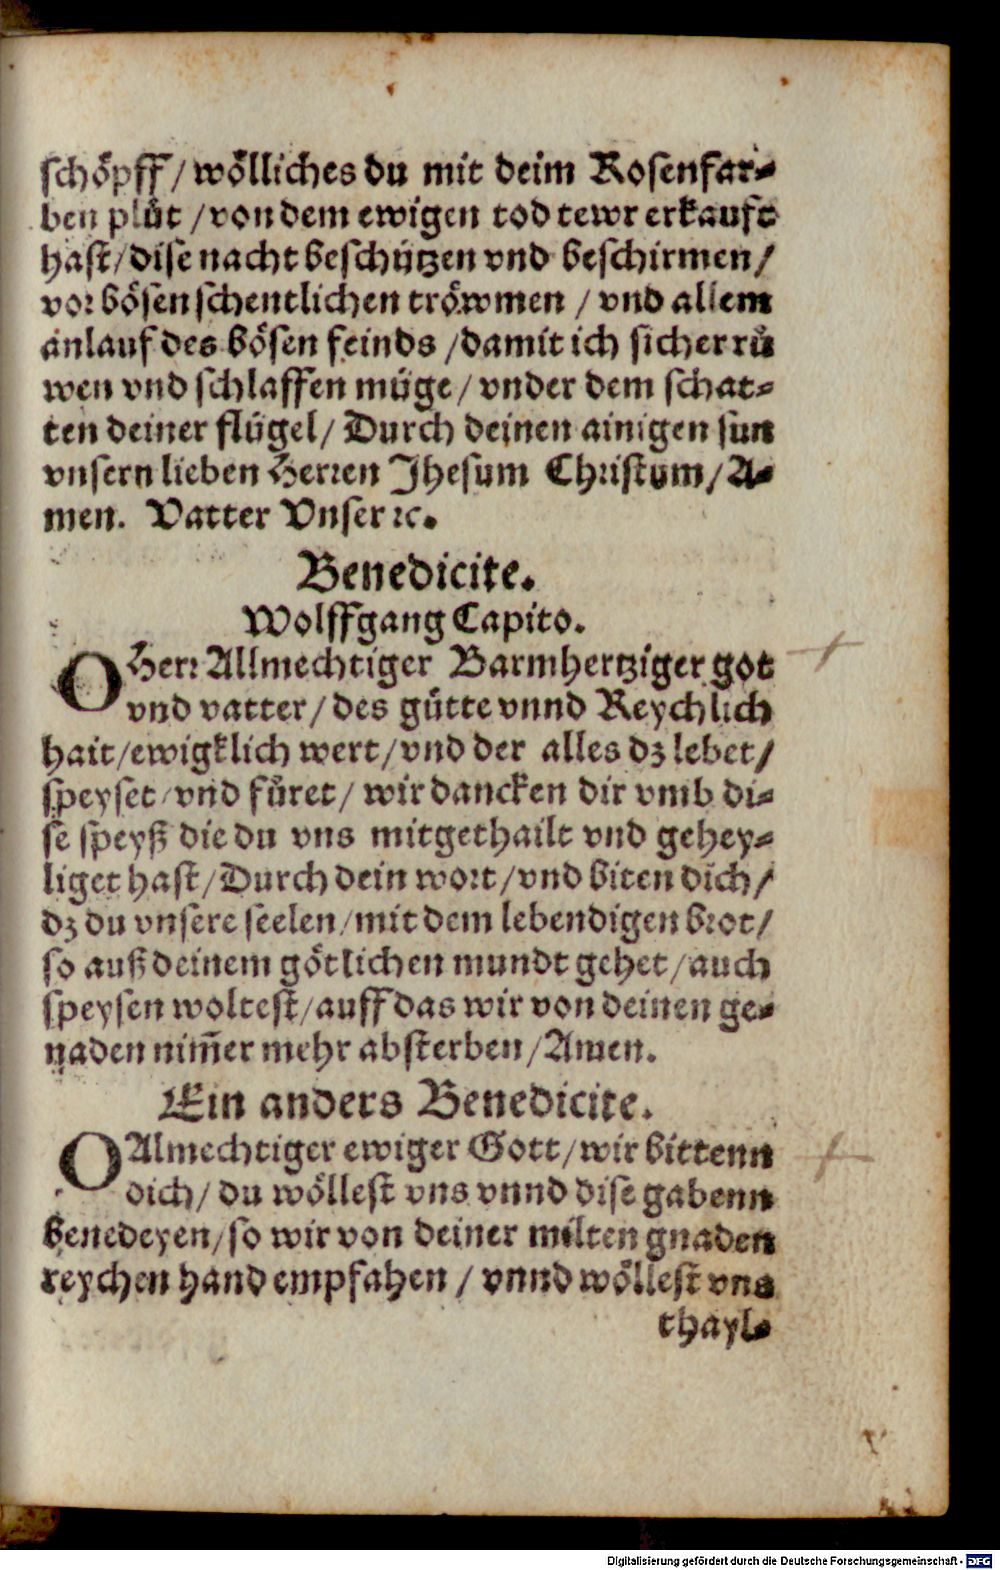 schöpff / wölliches du mit deim Rosenfar-
ben plůt / von dem ewigen tod tewr erkauft
hast / dise nacht beschützen vnd beschirmen /
vor bösen schentlichen tröwmen / vnd allem
anlauf des bösen feinds / damit ich sicher rů
wen vnd schlaffen müge / vnder dem schat-
ten deiner flügel / Durch deinen ainigen sun
vnsern lieben Herren Jhesum Christum / A-
men. Vatter Vnser ꝛc.
Benedicite.
Wolffgang Capito.
O Herr Allmechtiger Barmhertziger got
vnd vatter / des gütte vnnd Reychlich
hait / ewigklich wert / vnd der alles dz lebet /
speyset / vnd fůret / wir dancken dir vmb di-
se speyß die du vns mitgethailt vnd gehey-
liget hast / Durch dein wort / vnd biten dich /
dz du vnsere seelen / mit dem lebendigen brot /
so auß deinem götlichen mundt gehet / auch
speysen woltest / auff das wir von deinen ge-
naden nim̄er mehr absterben / Amen.
Ein anders Benedicite.
O Almechtiger ewiger Gott / wir bittenn
dich / du wöllest vns vnnd dise gabenn
benedeyen / so wir von deiner milten gnaden
reychen hand empfahen / vnnd wöllest vns
thayl-
Digitalisierung gefördert durch die Deutsche Forschungsgemeinschaft - DFG